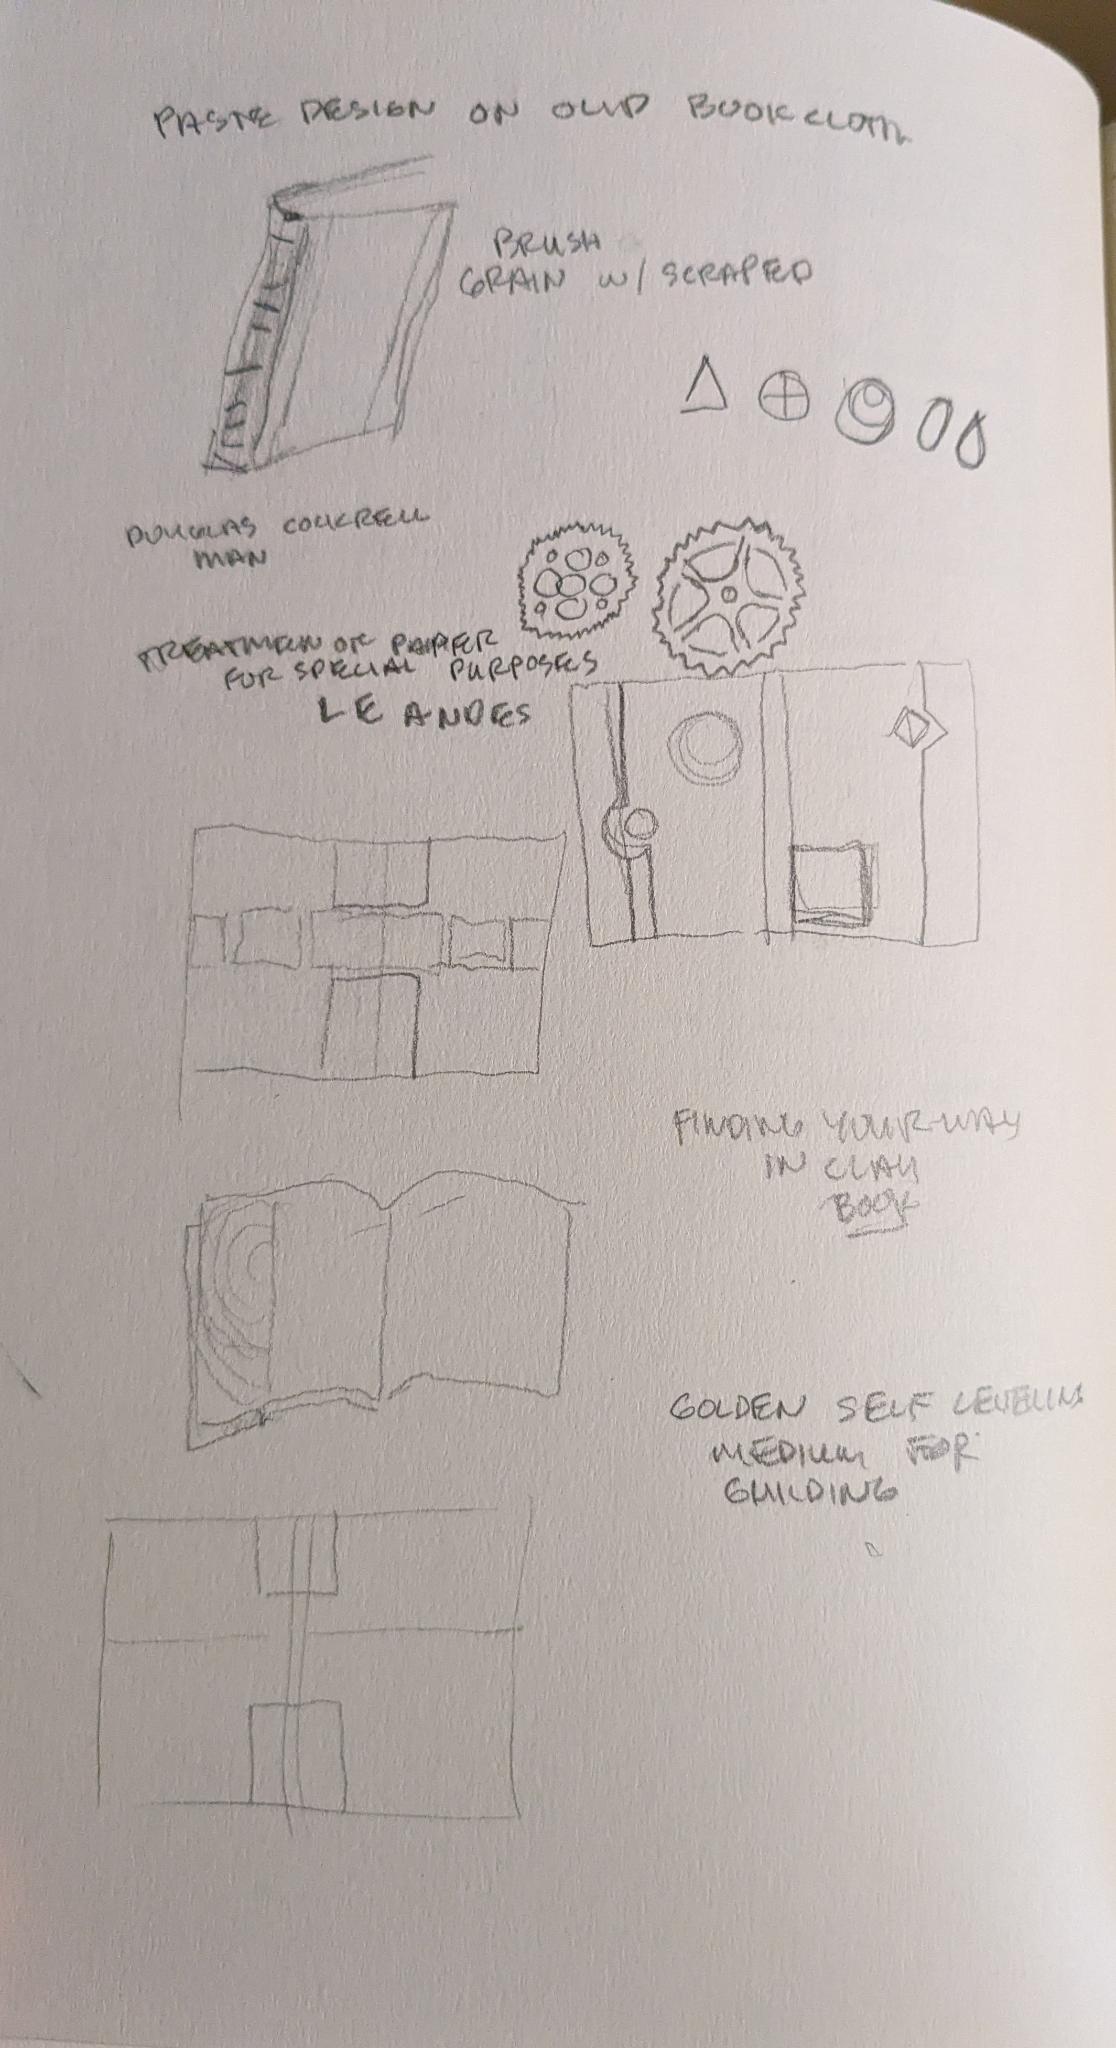 PASTE DESIGN ON OLD BOOKCLOTH
BRUSH
GRAIN W/ SCRAPED
DOUGLAS COCKRELL
MAN
TREATMEN OF PAPER
FOR SPECIAL PURPOSES
LE ANDES
FINDING YOUR WAY
IN CLAY
BOOK
GOLDEN SELF LEVELING
MEDIUM FOR
GUILDING